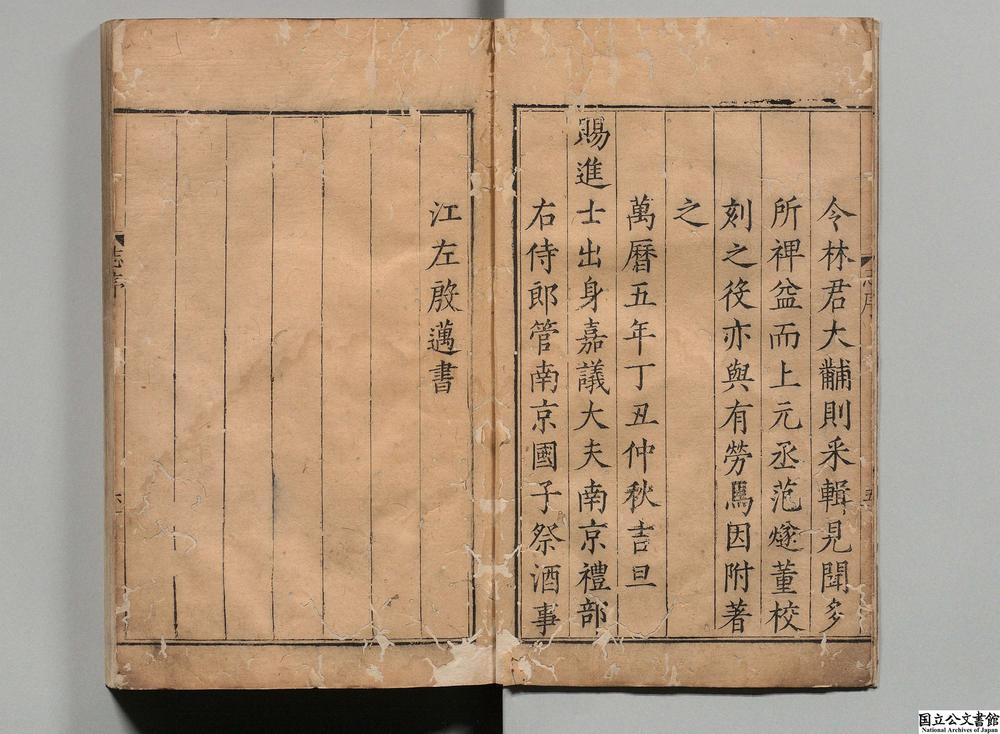 令林君大黼則采輯見聞多
所裨益而上元丞范燧董校
刻之役亦與有勞焉因附著
之
萬曆五年丁丑仲秋吉旦
賜進士出身嘉議大夫南京禮部
右侍郎管南京國子祭酒事
江左殷邁書
志序
国立公文書館
National Archives of Japan